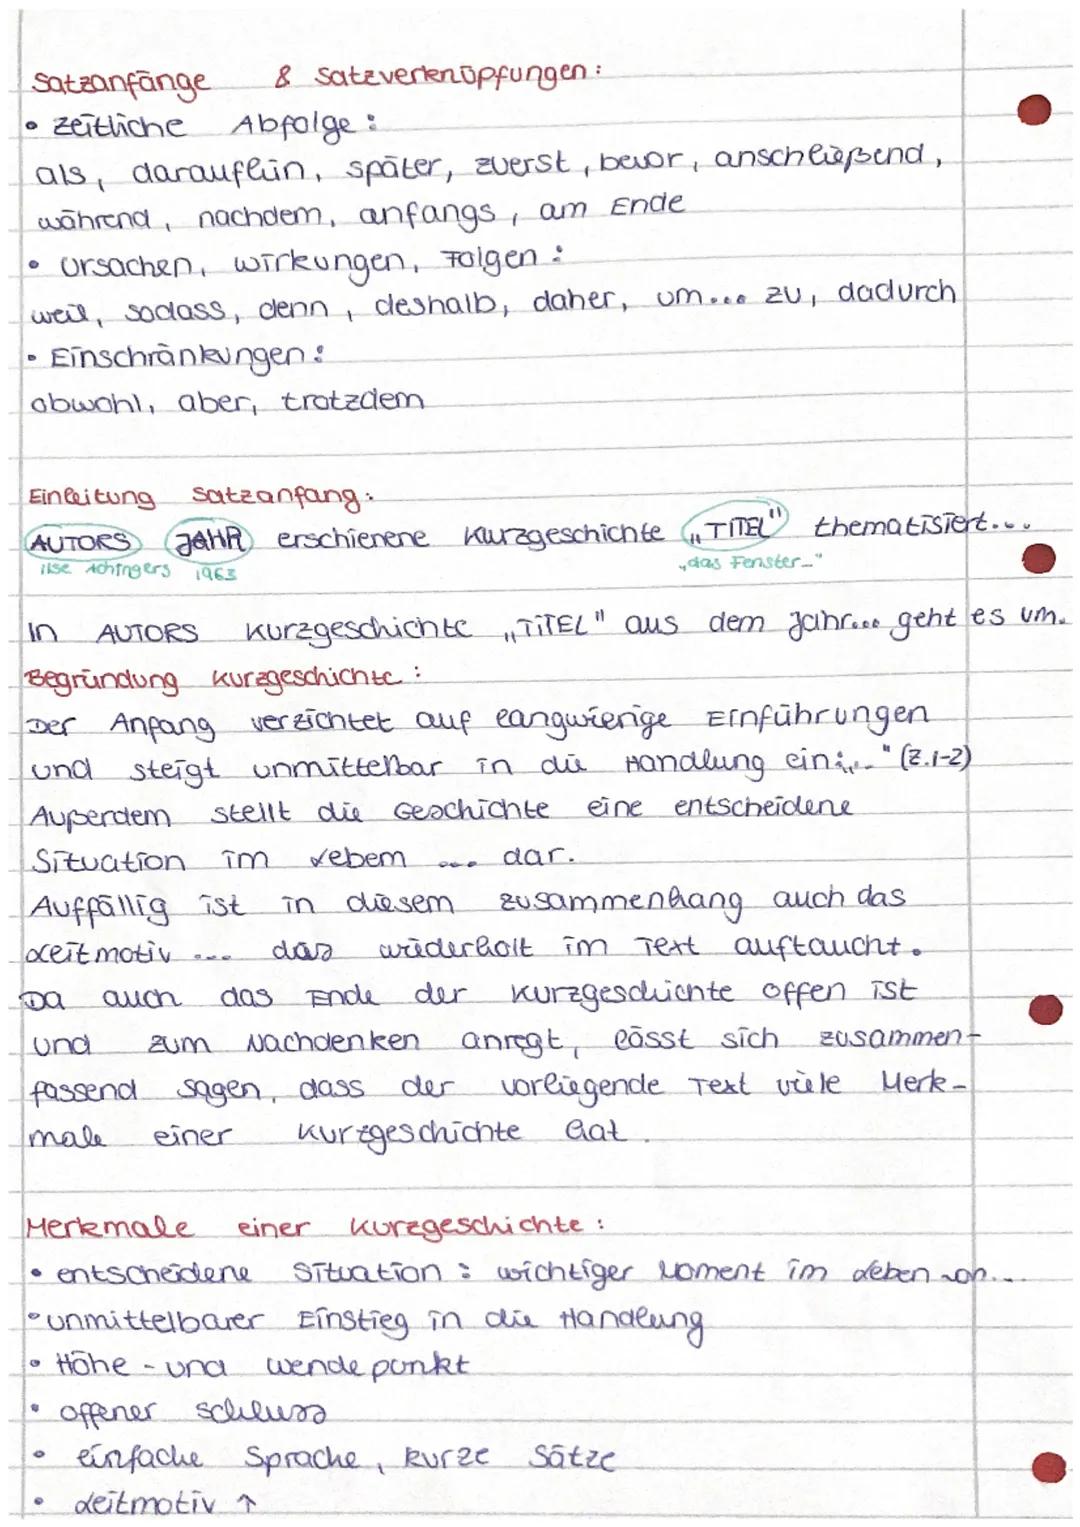 Satzanfänge & Satzverknüpfungen:
• zeitliche Abfolge:
als, daraufhin, später, zuerst, bevor, anschließend,
während, nachdem, anfangs, am Ende
• Ursachen, Wirkungen, Folgen:
weil, sodass, denn, deshalb, daher, um... zu, dadurch
• Einschränkungen:
obwohl, aber, trotzdem
Einleitung Satzanfang:
AUTORS JAHR erschienene Kurzgeschichte „TITEL" thematisiert...
Ilse Achingers 1963 „das Fenster..."
In AUTORS Kurzgeschichte „TITEL" aus dem Jahr... geht es um.
Begründung Kurzgeschichte:
Der Anfang verzichtet auf langwierige Einführungen
und steigt unmittelbar in die Handlung ein: „..." (Z.1-2)
Außerdem stellt die Geschichte eine entscheidene
Situation im Lebem ... dar.
Auffällig ist in diesem Zusammenhang auch das
Leitmotiv ... das wiederholt im Text auftaucht.
Da auch das Ende der Kurzgeschichte offen ist
und zum Nachdenken anregt, lässt sich zusammen-
fassend sagen, dass der vorliegende Text viele Merk-
male einer Kurzgeschichte hat.
Merkmale einer Kurzgeschichte:
• entscheidene Situation: wichtiger Moment im Leben von...
• unmittelbarer Einstieg in die Handlung
• Höhe- und Wendepunkt
• offener Schluss
• einfache Sprache, kurze Sätze
• Leitmotiv ↑